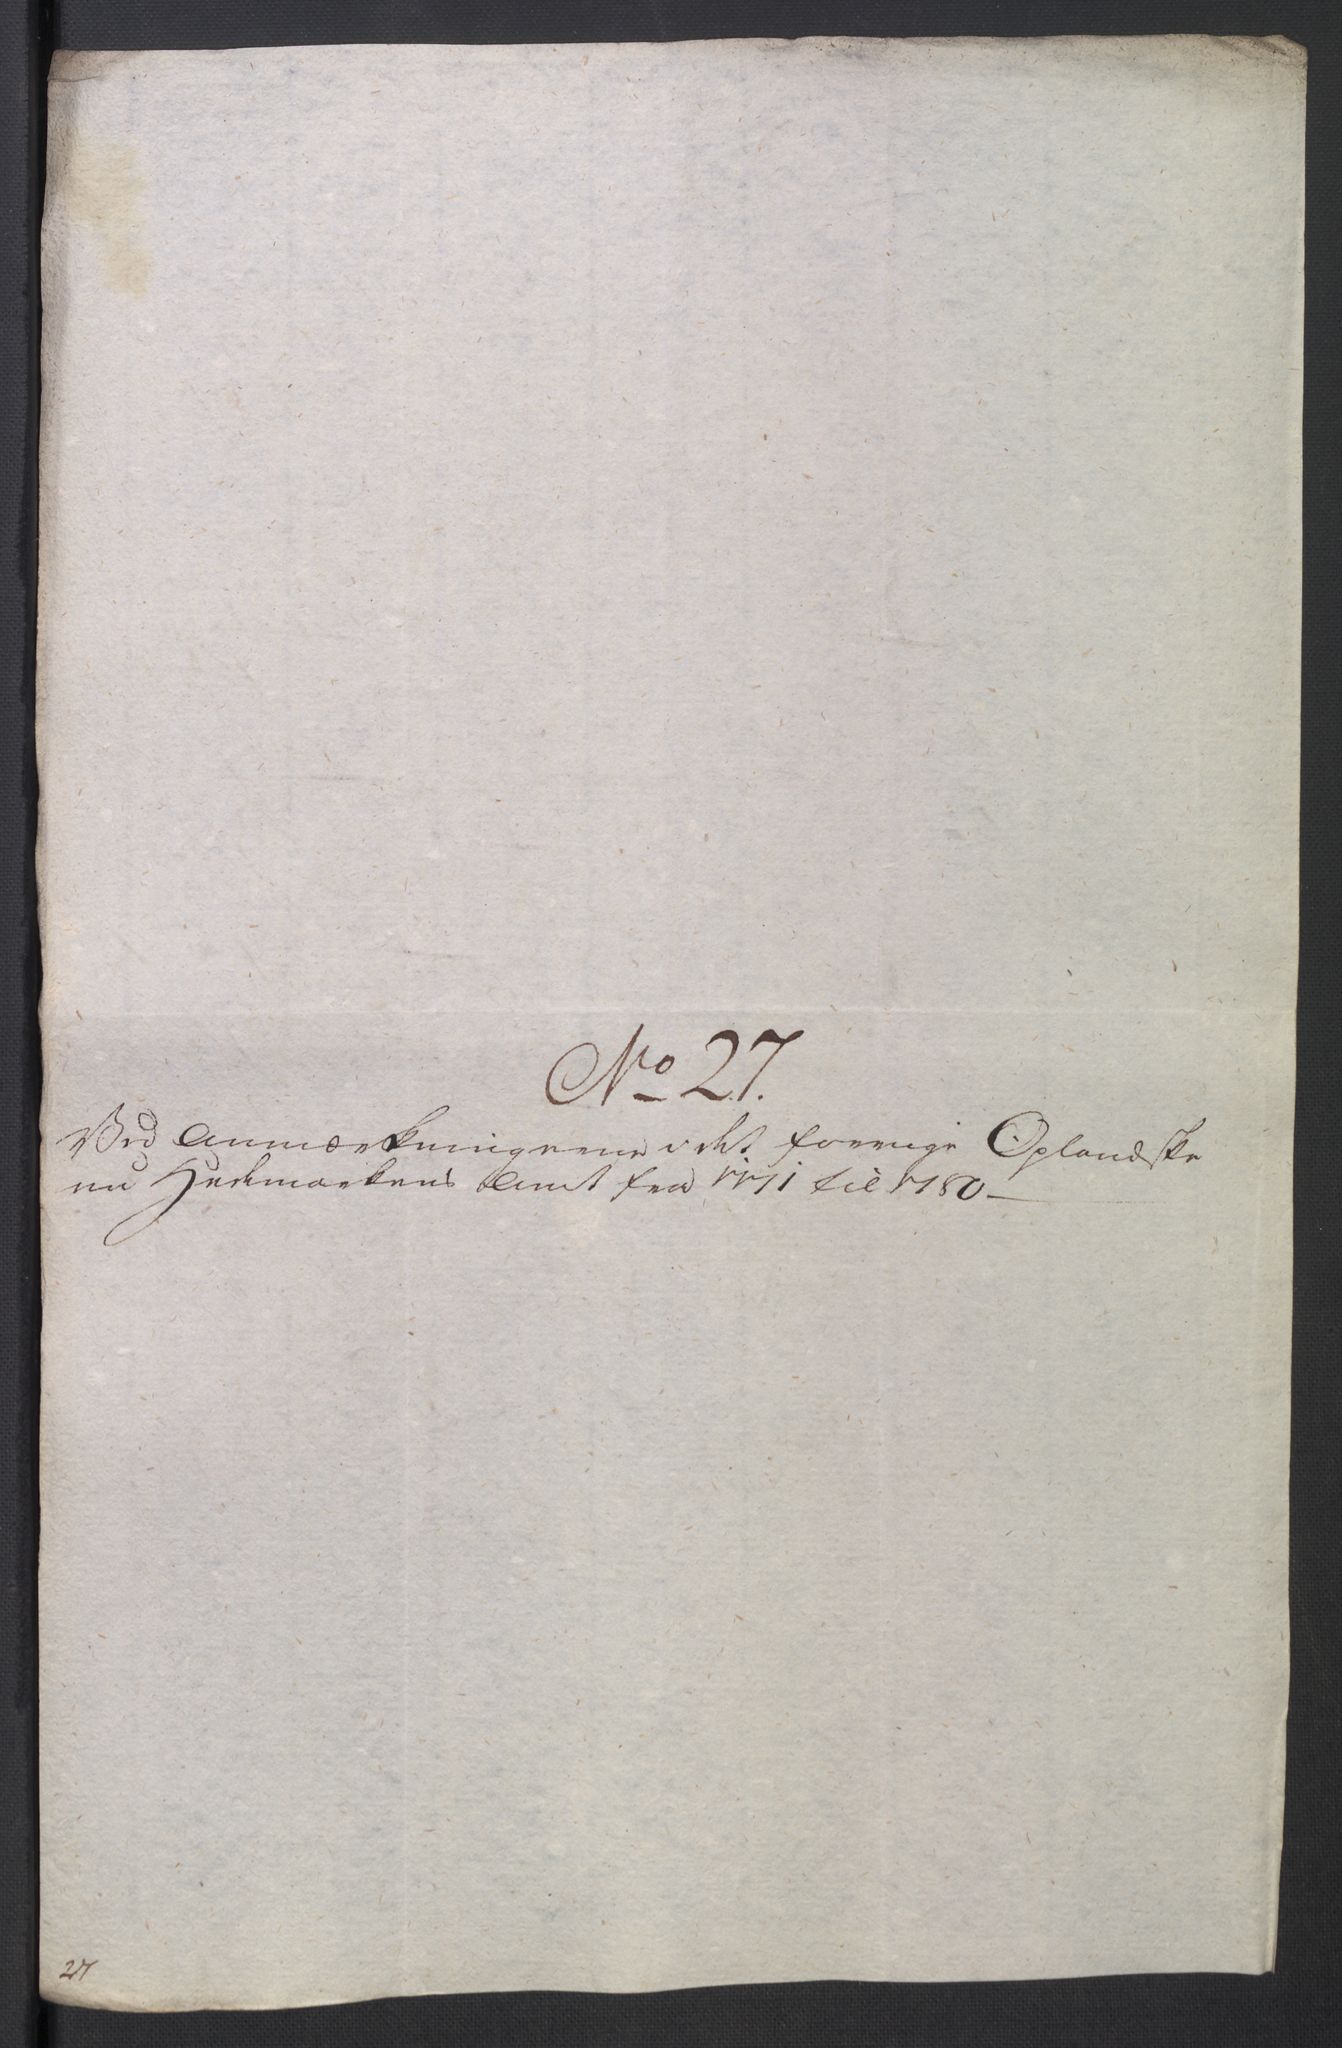 No 27.
Ved Anmærkningerne i det forrige Oplandske
nu Hedemarkens Amt fra 1771 til 1780 —
27